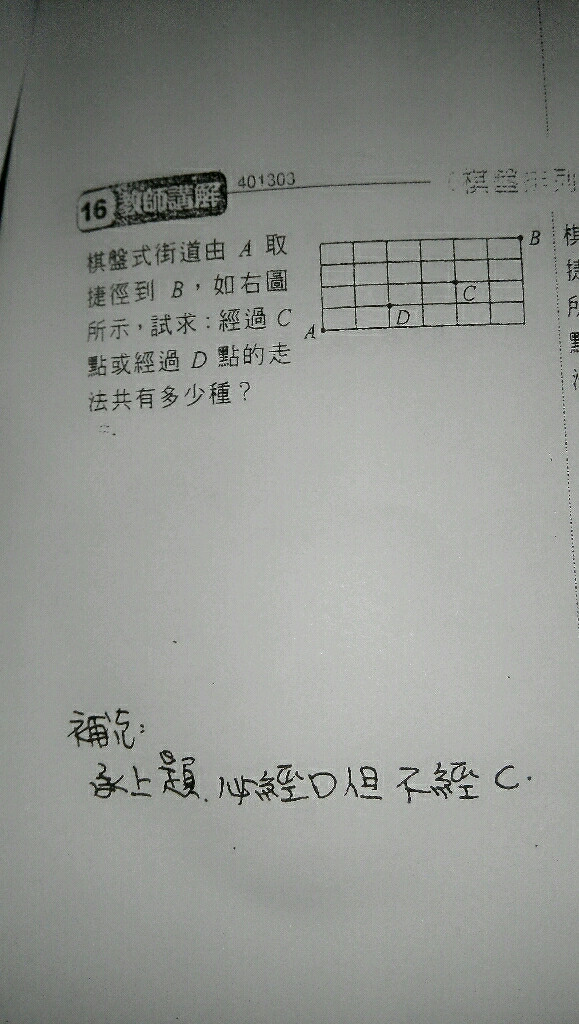 16 教師講解 401303
棋盤排列
棋盤式街道由 A 取
捷徑到 B，如右圖
所示，試求：經過 C
點或經過 D 點的走
法共有多少種？
B
C
D
A
棋
捷
所
點
補充：
承上題，必經D但不經C.